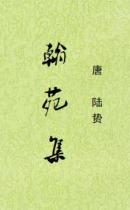 翰苑集
唐 陆贽